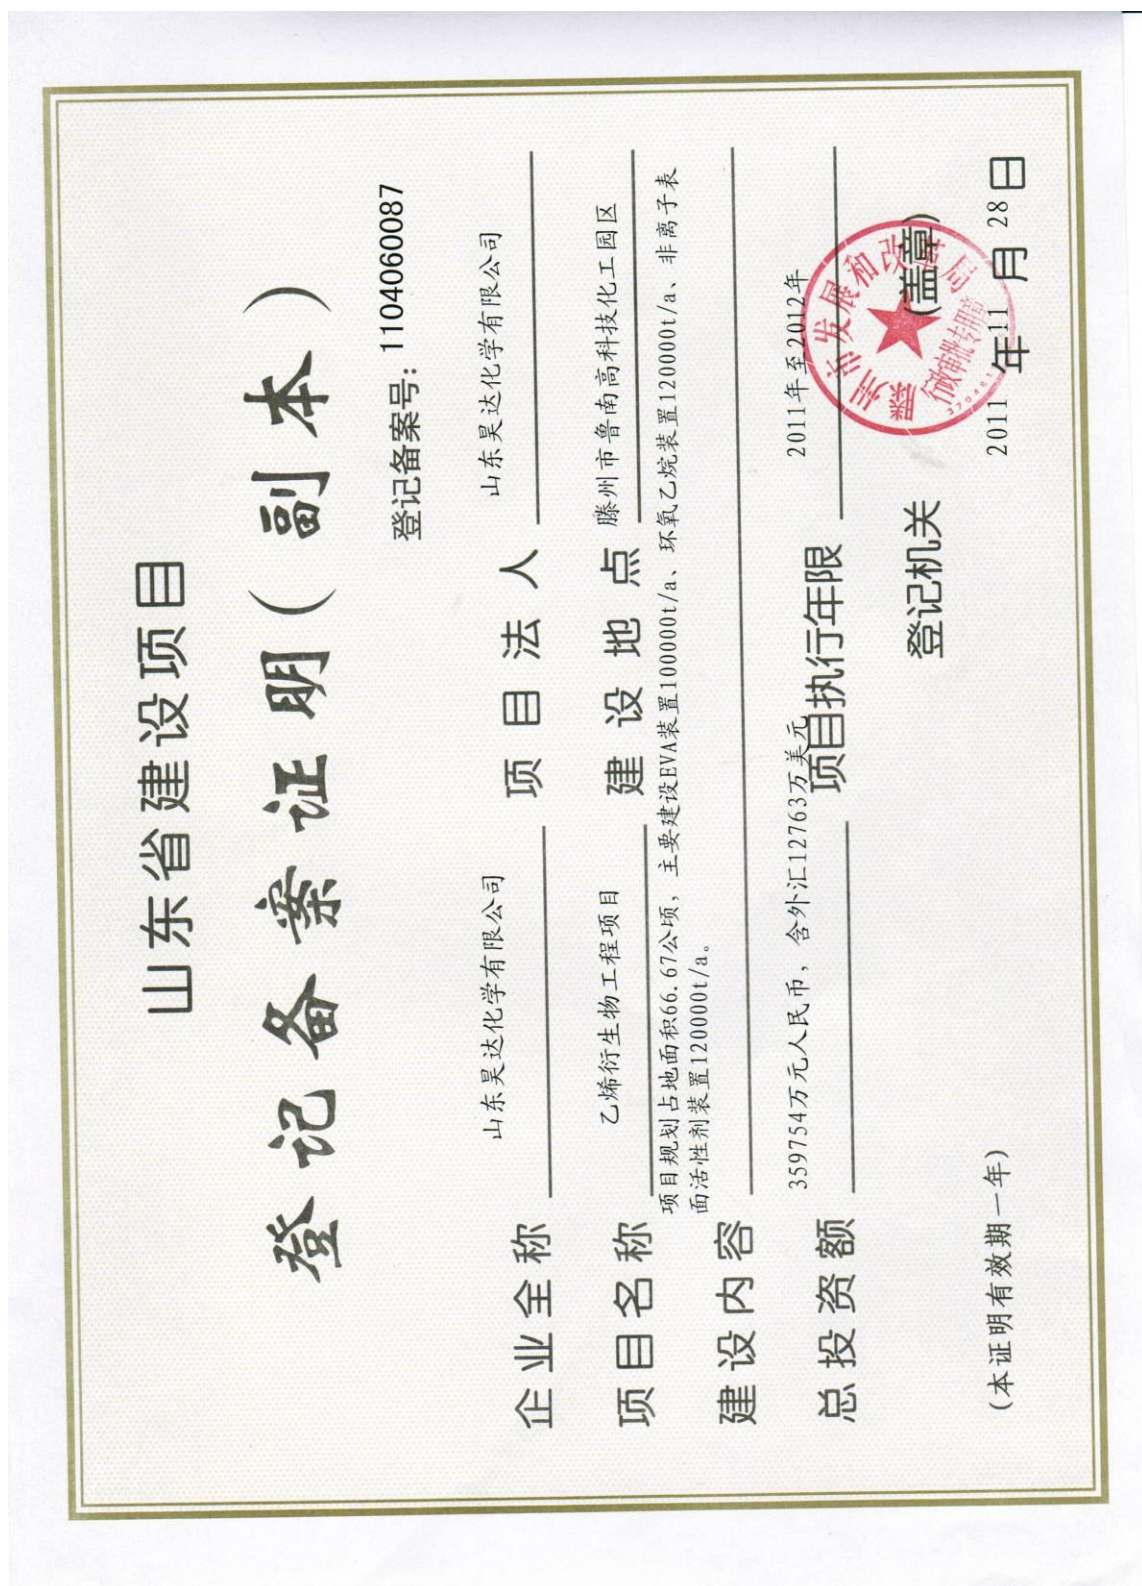 山东省建设项目
登记备案证明(副本)
登记备案号: 1104060087
企业全称 山东昊达化学有限公司 项目法人 山东昊达化学有限公司
项目名称 乙烯衍生物工程项目 建设地点 滕州市鲁南高科技化工园区
建设内容 项目规划占地面积66.67公顷，主要建设EVA装置100000t/a、环氧乙烷装置120000t/a、非离子表
面活性剂装置120000t/a。
总投资额 359754万元人民币，含外汇12763万美元 项目执行年限 2011年至2012年
登记机关 (盖章)
滕州市发展和改革局
行政审批专用章
(本证明有效期一年) 2011年11月28日